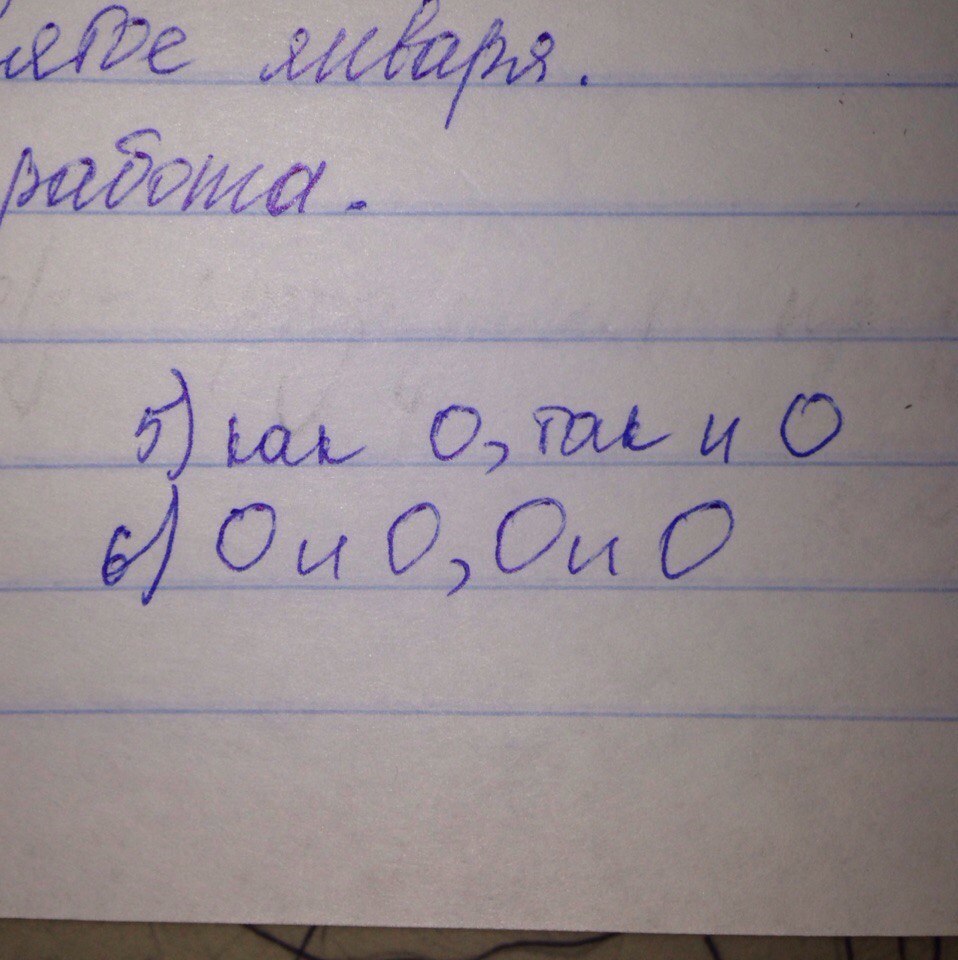 ятое января.
работа.
5) как О, так и О
6) О и О, О и О